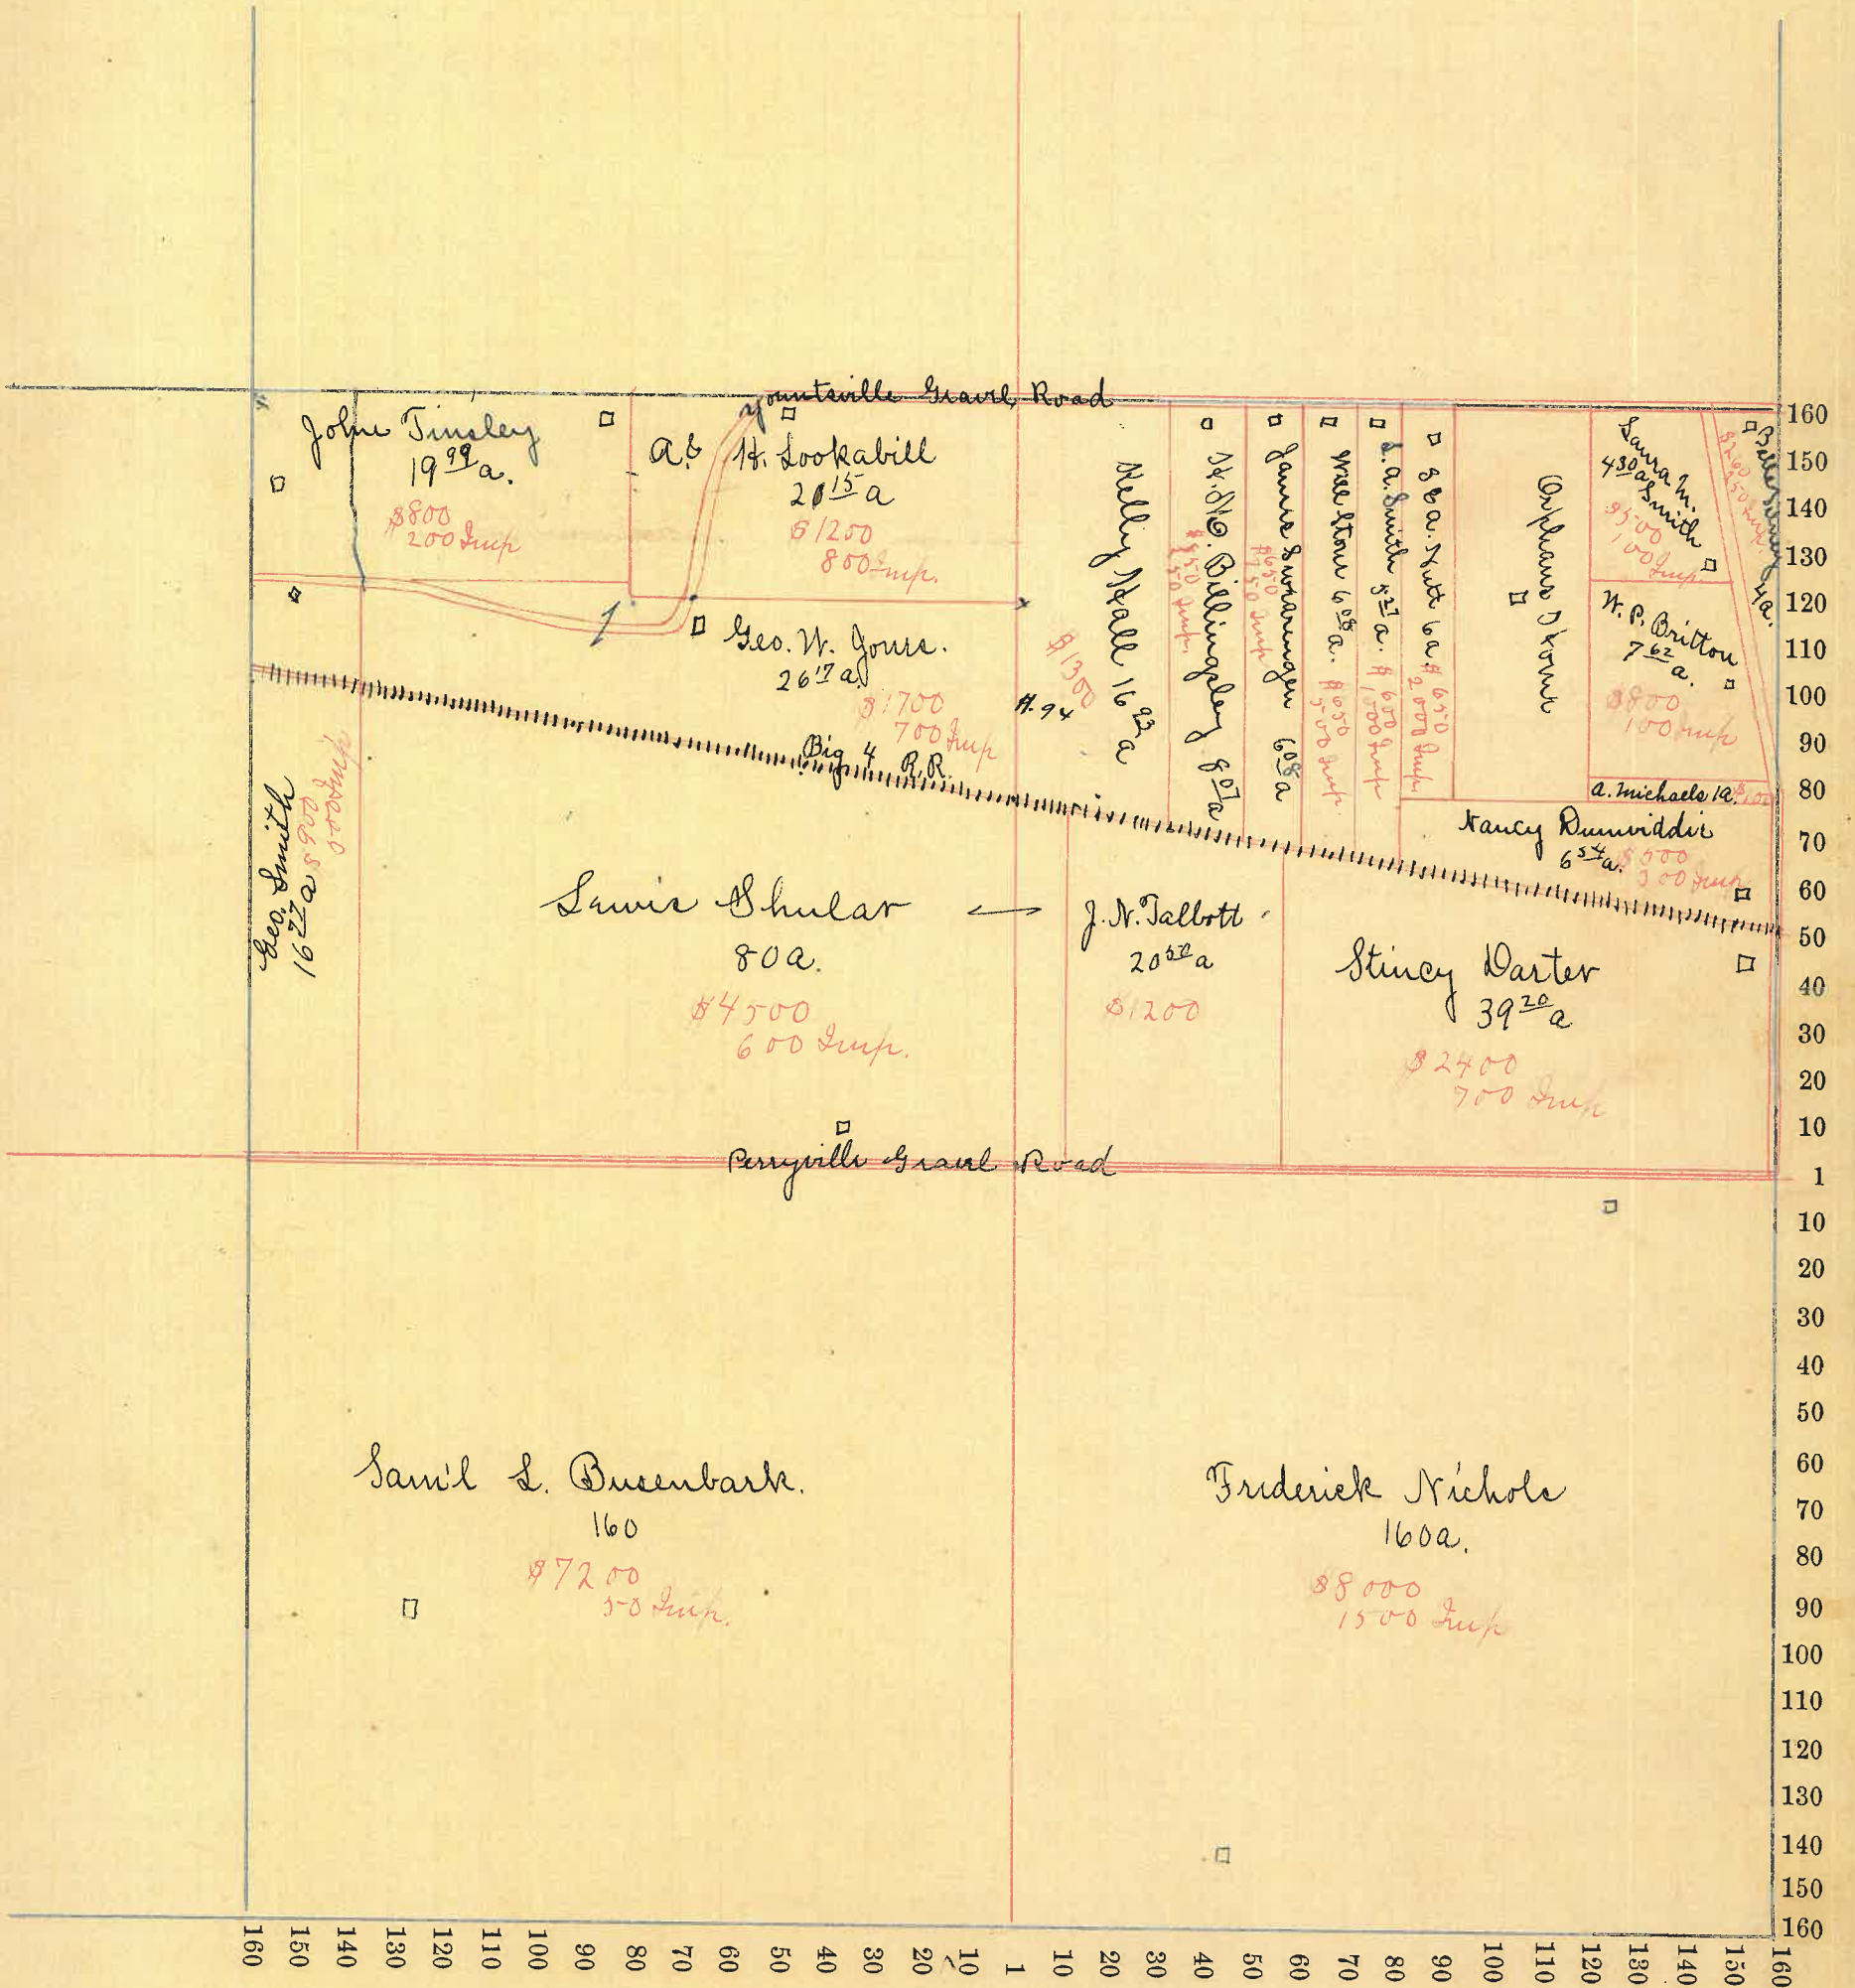 Yountsville Gravel Road
John Tinsley
19 99 a.
$800
200 Imp
A. & H. Lookabill
20 15 a
$1200
800 Imp.
Geo. W. Jones.
26 17 a
$1700
700 Imp
Big 4 R.R.
Geo. Smith
16 77 a $900
Kelly Hall 16 93 a
$1300
A. 94
Billingsley 8 07 a
James Swearingen 6 08 a
$650
Will Stone 6 08 a.
$650
500 Imp
L. A. Smith 5 27 a.
$600
1000 Imp
Nutt 6a.
$650
2000 Imp
Orphans Home
Laura M. Smith
4 30 a
$500
100 Imp
4a.
W. P. Britton
7 62 a.
$800
100 Imp
A. Michaels 1a. $100
Nancy Dunwiddie
6 54 a.
$500
300 Imp
Lewis Shular
80 a.
$4500
600 Imp.
J. N. Talbott
20 50 a
$1200
Stincy Darter
39 20 a
$2400
700 Imp
Perryville Gravel Road
Sam'l L. Busenbark.
160
$7200
50 Imp.
Frederick Nichols
160 a.
$8000
1500 Imp
160
150
140
130
120
110
100
90
80
70
60
50
40
30
20
10
1
10
20
30
40
50
60
70
80
90
100
110
120
130
140
150
160
160 150 140 130 120 110 100 90 80 70 60 50 40 30 20 10 1 10 20 30 40 50 60 70 80 90 100 110 120 130 140 150 160